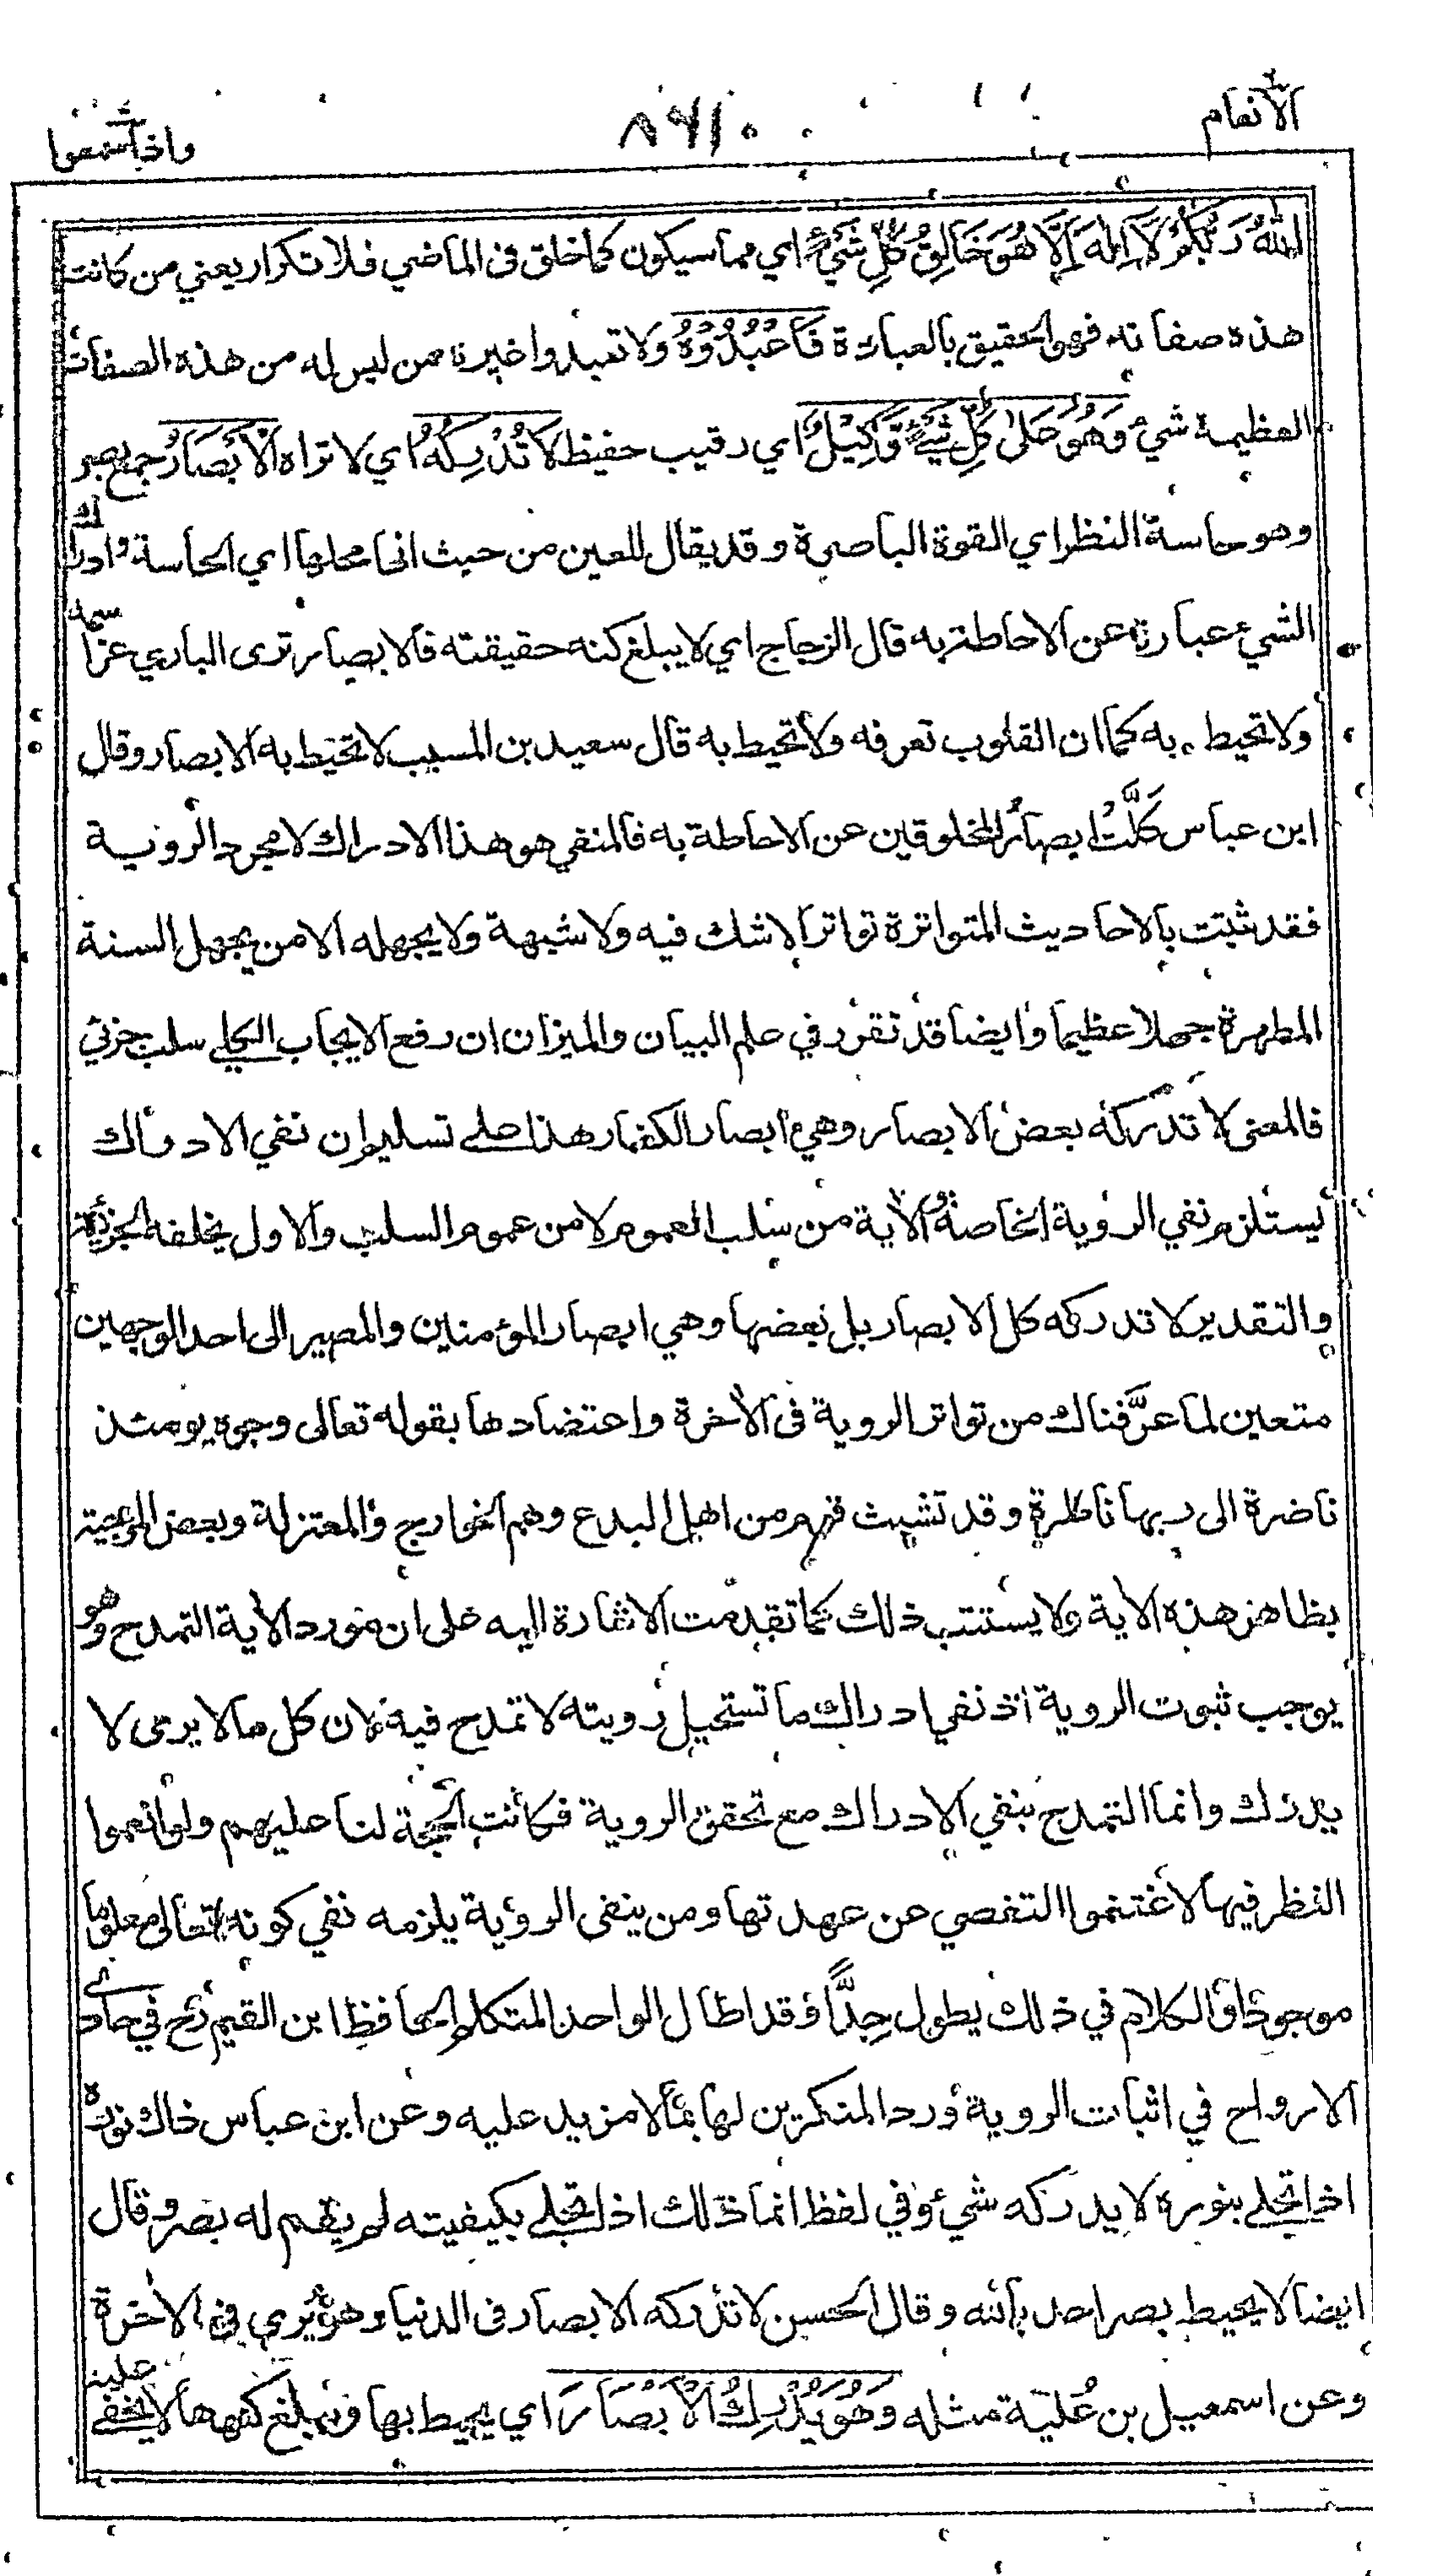 الأنعام
واذا سمعوا
اللهُ رَبُّكُمْ لَا إِلٰهَ إِلَّا هُوَ خَالِقُ كُلِّ شَيْءٍ اي مما سيكون كما خلق فى الماضي فلا تكرار يعني من كانت
هذه صفاته فهو الحقيق بالعبادة فَاعْبُدُوْهُ ولا تعبدوا غيره ممن ليس له من هذه الصفات
العظيمة شيء وَهُوَ عَلٰى كُلِّ شَيْءٍ وَّكِيْلٌ اي رقيب حفيظ لَا تُدْرِكُهُ اي لا تراه الْأَبْصَارُ جمع بصر
وهو حاسة النظر اي القوة الباصرة وقد يقال للعين من حيث انها محلها اي الحاسة وادراك
الشيء عبارة عن الاحاطة به قال الزجاج اي لا يبلغ كنه حقيقته فالابصار ترى الباري عز اسمه
ولا تحيط به كما ان القلوب تعرفه ولا تحيط به قال سعيد بن المسيب لا تحيط به الابصار وقال
ابن عباس كَلَّتْ ابصارُ المخلوقين عن الاحاطة به فالمنفي هو هذا الادراك لا مجرد الروية
فقد ثبتت بالاحاديث المتواترة تواترا لا شك فيه ولا شبهة ولا يجهله الا من يجهل السنة
المطهرة جهلا عظيما وايضا قد تقرر في علم البيان والميزان ان رفع الايجاب الكلي سلب جزئي
فالمعنى لا تدركه بعض الابصار وهي ابصار الكفار هذا على تسليم ان نفي الادراك
يستلزم نفي الروية الخاصة والآية من سلب العموم لا من عموم السلب والاول يخلفه الجزئية
والتقدير لا تدركه كل الابصار بل بعضها وهي ابصار المؤمنين والمصير الى احد الوجهين
متعين لما عرَّفناك من تواتر الروية فى الآخرة واعتضادها بقوله تعالى وجوه يومئذ
ناضرة الى ربها ناظرة وقد تشبث قوم من اهل البدع وهم الخوارج والمعتزلة وبعض المرجية
بظاهر هذه الاية ولا يستتب ذلك كما تقدمت الاشارة اليه على ان مورد الآية التمدح وهو
يوجب ثبوت الروية اذ نفي ادراك ما تستحيل رويته لا تمدح فيه لان كل ما لا يرى لا
يدرك وانما التمدح بنفي الادراك مع تحقق الروية فكانت الحجة لنا عليهم ولو انعموا
النظر فيها لاغتنموا التفصي عن عهدتها ومن ينفى الرؤية يلزمه نفي كونه تعالى معلوما
موجودا والكلام في ذلك يطول جِدًّا وقد اطال الواحد المتكلم الحافظ ابن القيم رح في حادى
الارواح في اثبات الروية ورد المنكرين لها بما لا مزيد عليه وعن ابن عباس ذاك نوره
اذا تجلى بنوره لا يدركه شيء وفي لفظ انما ذلك اذا تجلى بكيفيته لم يقم له بصر وقال
ايضا لا يحيط بصر احد بالله وقال الحسن لا تدركه الابصار فى الدنيا وهو يرى فى الآخرة
وعن اسمعيل بن عُليّة مثله وَهُوَ يُدْرِكُ الْأَبْصَارَ اي يحيط بها ويبلغ كنهها لا يخفى عليه